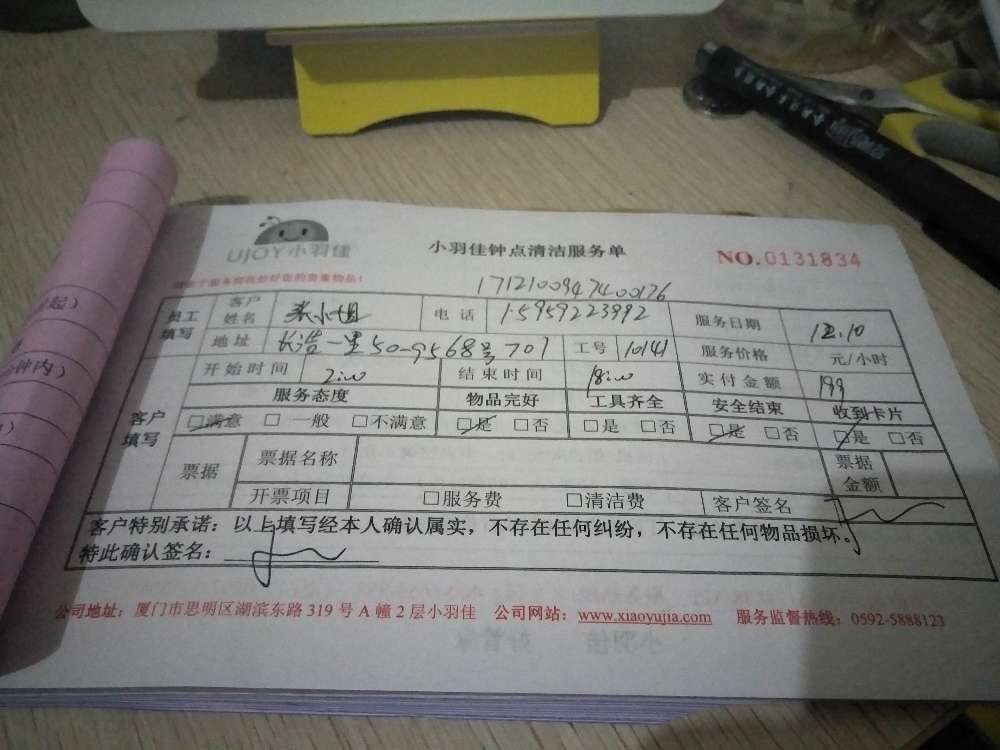 UJOY小羽佳
小羽佳钟点清洁服务单
NO.0131834
1712100947400176
员工填写 客户姓名 张小姐 电话 15959223992 服务日期 12.10
地址 长浩一里50-9568号701 工号 10141 服务价格 元/小时
开始时间 结束时间 实付金额 199
客户填写 服务态度 物品完好 工具齐全 安全结束 收到卡片
□满意 □一般 □不满意 □是 □否 □是 □否 □是 □否 □是 □否
票据 票据名称 票据金额
开票项目 □服务费 □清洁费 客户签名
客户特别承诺：以上填写经本人确认属实，不存在任何纠纷，不存在任何物品损坏。
特此确认签名：
公司地址：厦门市思明区湖滨东路 319 号 A 幢 2 层小羽佳 公司网站：www.xiaoyujia.com 服务监督热线：0592-5888123
起）
钟内）